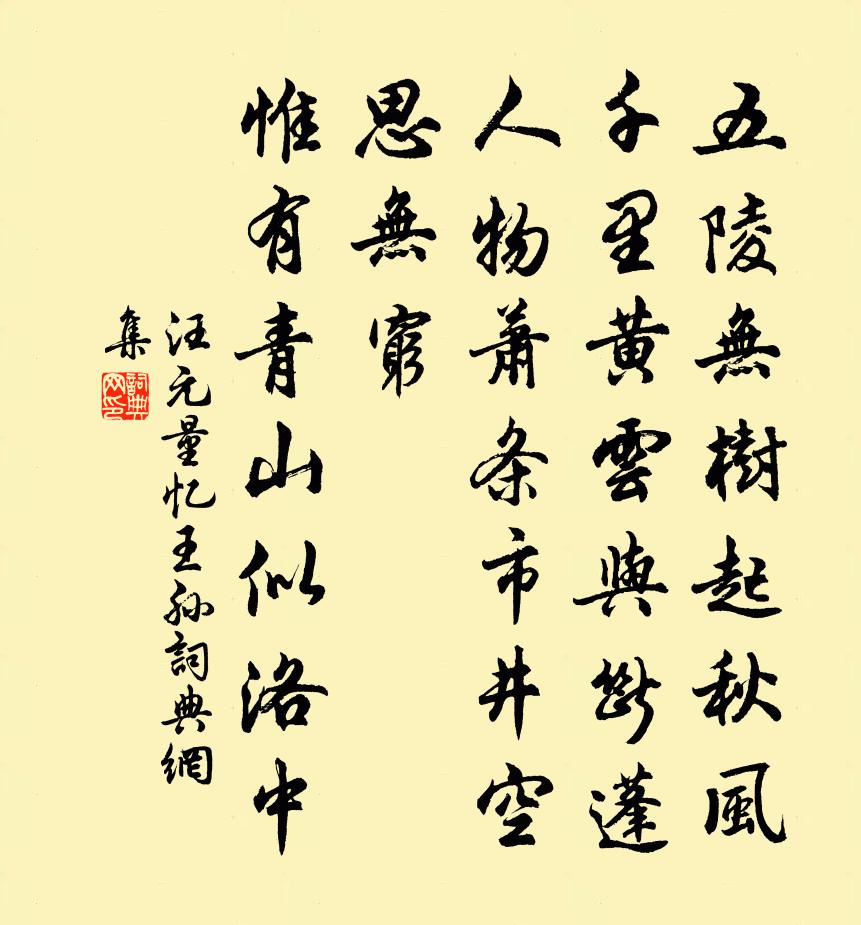 五陵無樹起秋風
千里黃雲與斷蓬
人物蕭条市井空
思無窮
惟有青山似洛中
汪元量忆王孙詞典網
集
詞典
网印